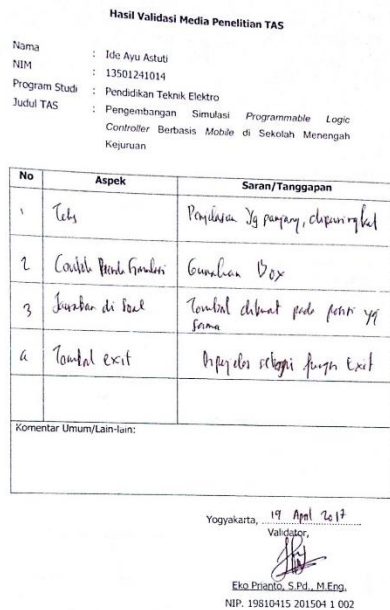 Hasil Validasi Media Penelitian TAS
Nama : Ide Ayu Astuti
NIM : 13501241014
Program Studi : Pendidikan Teknik Elektro
Judul TAS : Pengembangan Simulasi Programmable Logic
Controller Berbasis Mobile di Sekolah Menengah
Kejuruan
No Aspek Saran/Tanggapan
1 Teks Penjelasan yg panjang, dipersingkat
2 Contoh Gunakan Box
3 Jawaban di Soal Tombol dibuat pada posisi yg
sama
4 Tombol exit Diperjelas sebagai fungsi Exit
Komentar Umum/Lain-lain:
Yogyakarta, 19 April 2017
Validator,
Eko Prianto, S.Pd., M.Eng.
NIP. 19810415 201504 1 002